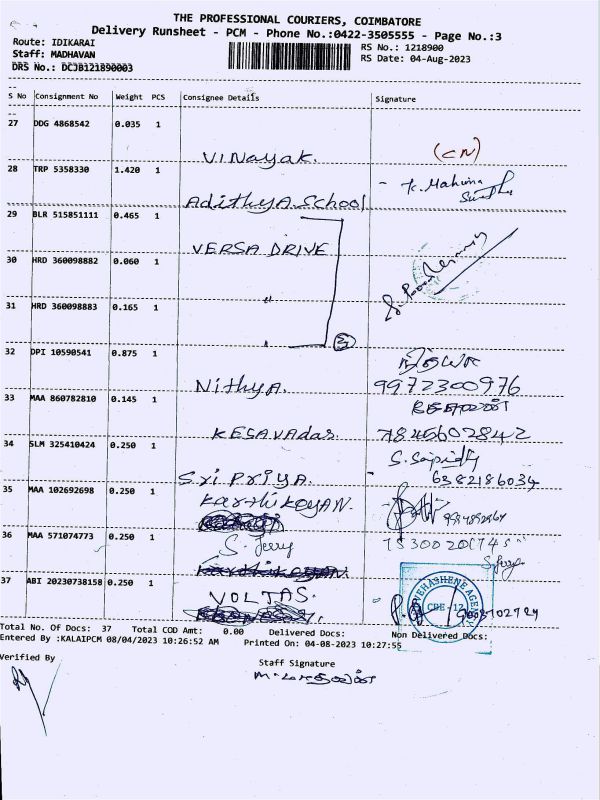 THE PROFESSIONAL COURIERS, COIMBATORE
Delivery Runsheet - PCM - Phone No.:0422-3505555 - Page No.:3
Route: IDIKARAI
RS No.: 1218900
Staff: MADHAVAN
RS Date: 04-Aug-2023
DRS No.: DCJB121890003
S No Consignment No Weight PCS Consignee Details Signature
27 DDG 4868542 0.035 1
VINayak. (CN)
28 TRP 5358330 1.420 1
AdithyA School K. Mahima
29 BLR 515851111 0.465 1
VERSA DRIVE
30 HRD 360098882 0.060 1
"
31 HRD 360098883 0.165 1
" 3
32 DPI 10590541 0.875 1
NithyA. 9972300976
33 MAA 860782810 0.145 1
KESAVAdas. 7845602842
34 SLM 325410424 0.250 1
Sri PriyA. 6382186034
35 MAA 102692698 0.250 1
KarthikeyAN.
36 MAA 571074773 0.250 1
S. Jerry
37 ABI 20230738158 0.250 1
VOLTAS.
CBE - 12
Total No. Of Docs: 37 Total COD Amt: 0.00 Delivered Docs: Non Delivered Docs:
Entered By :KALAIPCM 08/04/2023 10:26:52 AM Printed On: 04-08-2023 10:27:55
Verified By
Staff Signature